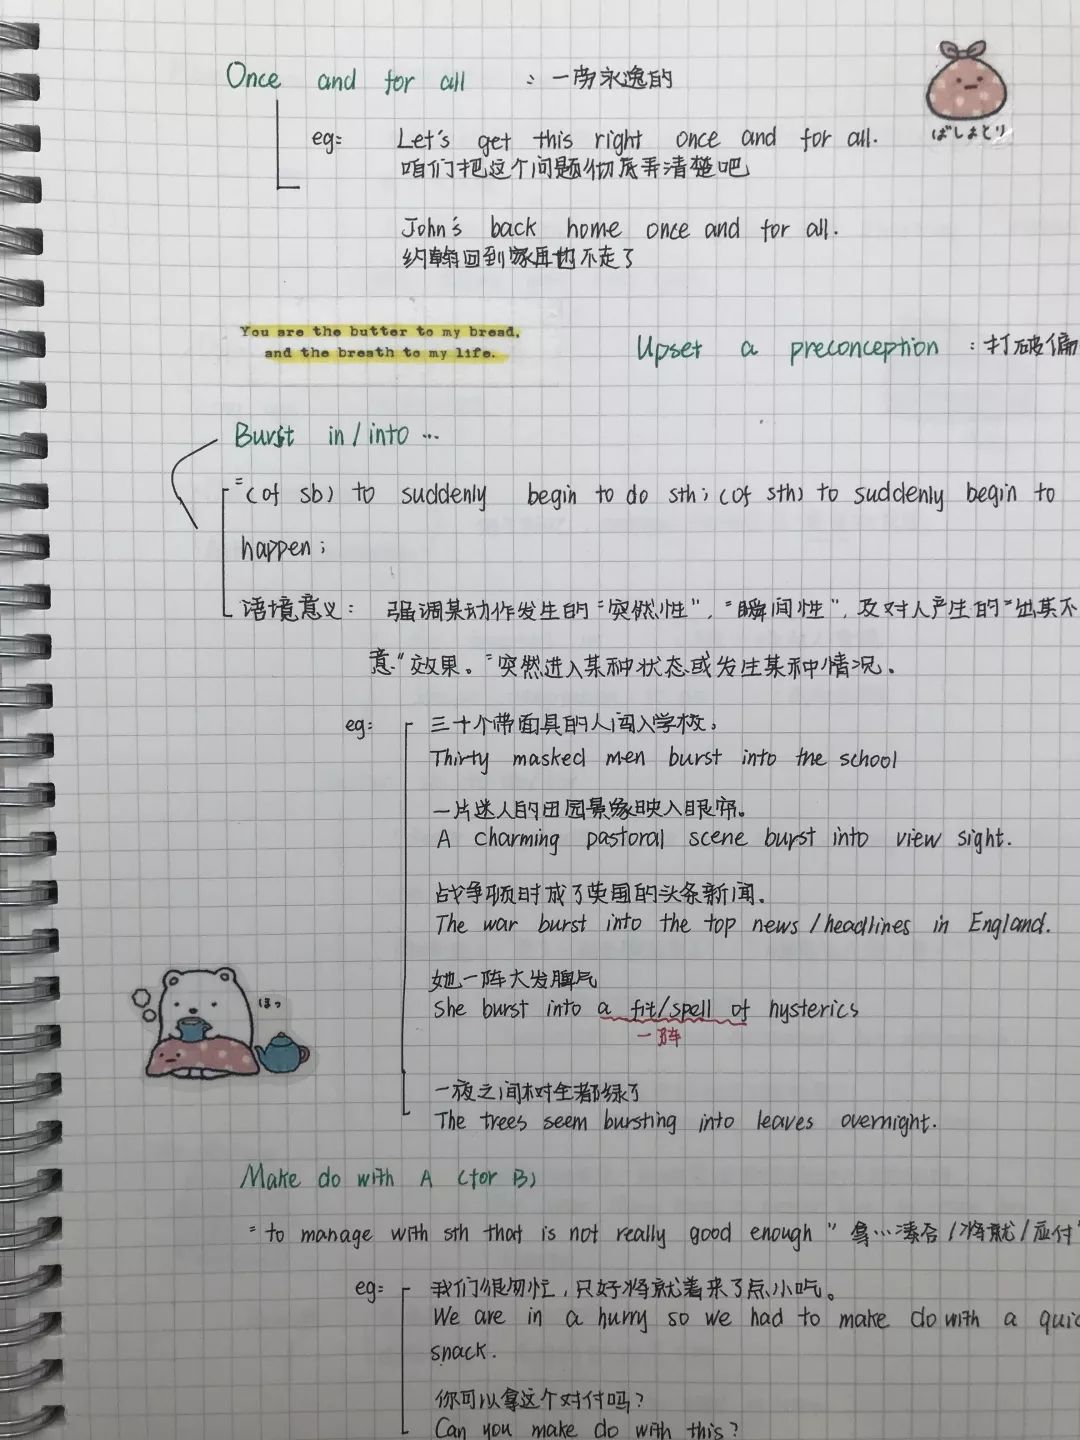 Once and for all ：一劳永逸的
ばしょとり
eg: Let's get this right once and for all.
咱们把这个问题彻底弄清楚吧
John's back home once and for all.
约翰回到家再也不走了
You are the butter to my bread,
and the breath to my life.
Upset a preconception ：打破偏
Burst in/into …
=(of sb) to suddenly begin to do sth; (of sth) to suddenly begin to
happen;
语境意义： 强调某动作发生的"突然性"，"瞬间性"，及对人产生的"出其不
意"效果。=突然进入某种状态或发生某种情况。
eg: 三十个带面具的人闯入学校；
Thirty masked men burst into the school
一片迷人的田园景缘映入眼帘。
A charming pastoral scene burst into view sight.
战争顿时成了英国的头条新闻。
The war burst into the top news/headlines in England.
她一阵大发脾气
She burst into a fit/spell of hysterics
一阵
ほっ
一夜之间树全都绿了
The trees seem bursting into leaves overnight.
Make do with A (for B)
= to manage with sth that is not really good enough "拿…凑合/将就/应付"
eg: 我们很匆忙，只好将就着来了点小吃。
We are in a hurry so we had to make do with a quic
snack.
你可以拿这个对付吗？
Can you make do with this?